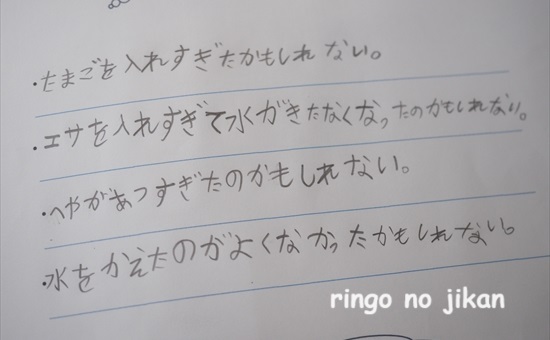 ・たまごを入れすぎたかもしれない。
・エサを入れすぎて水がきたなくなったのかもしれない。
・へやがあつすぎたのかもしれない。
・水をかえたのがよくなかったかもしれない。
ringo no jikan